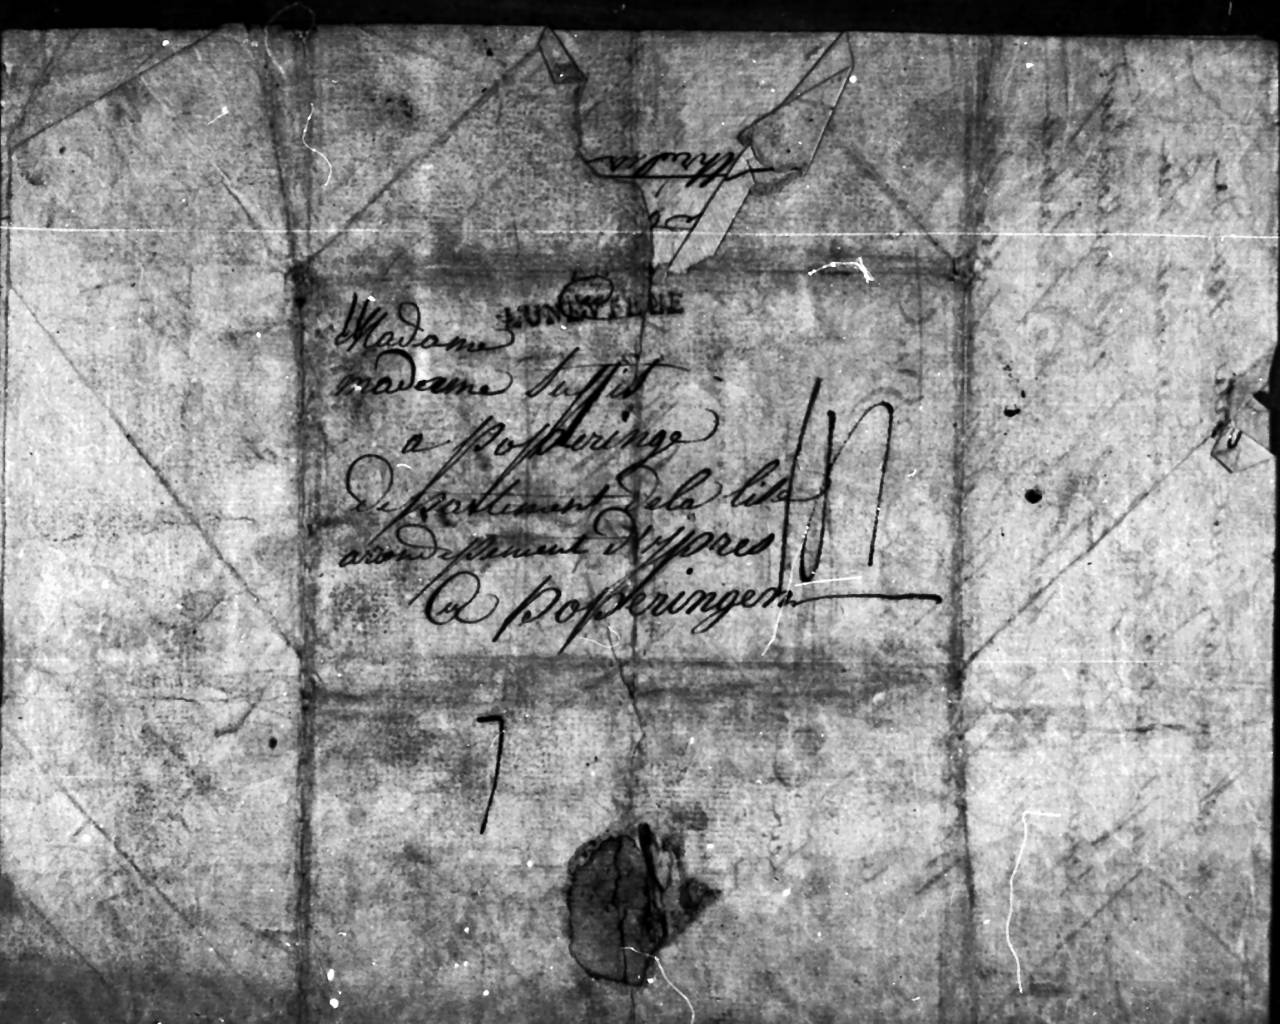 LUNEVILLE
Madame
madame Suffit
a popperinge
departement dela lise
arondissement d'ypres
a popperingen
7